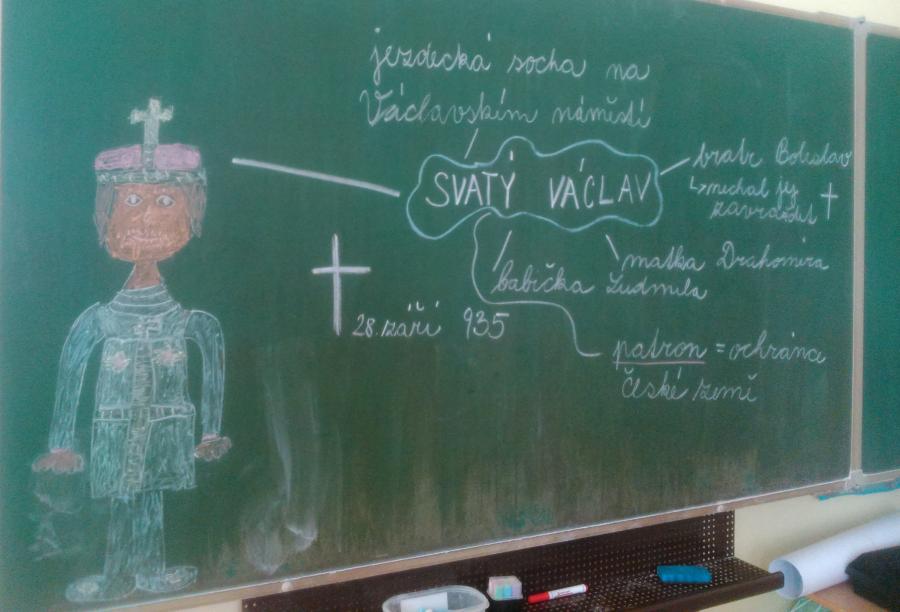 jezdecká socha na
Václavském náměstí
SVATÝ VÁCLAV
bratr Boleslav
↳ nechal jej
zavraždit †
matka Drahomíra
babička Ludmila
† 28. září 935
patron = ochránce
české země